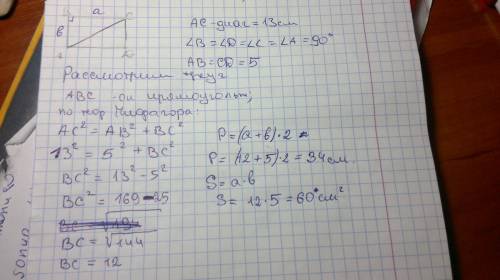 a
в
AC-диаг = 13см
∠B = ∠D = ∠C = ∠A = 90°
AB = CD = 5
Рассмотрим
ABC - он прямоугольн,
по теор Пифагора:
AC² = AB² + BC²
13² = 5² + BC²
BC² = 13² - 5²
BC² = 169 - 25
BC = √144
BC = 12
P = (a + в) · 2
P = (12 + 5) · 2 = 34 см
S = a · в
S = 12 · 5 = 60 см²